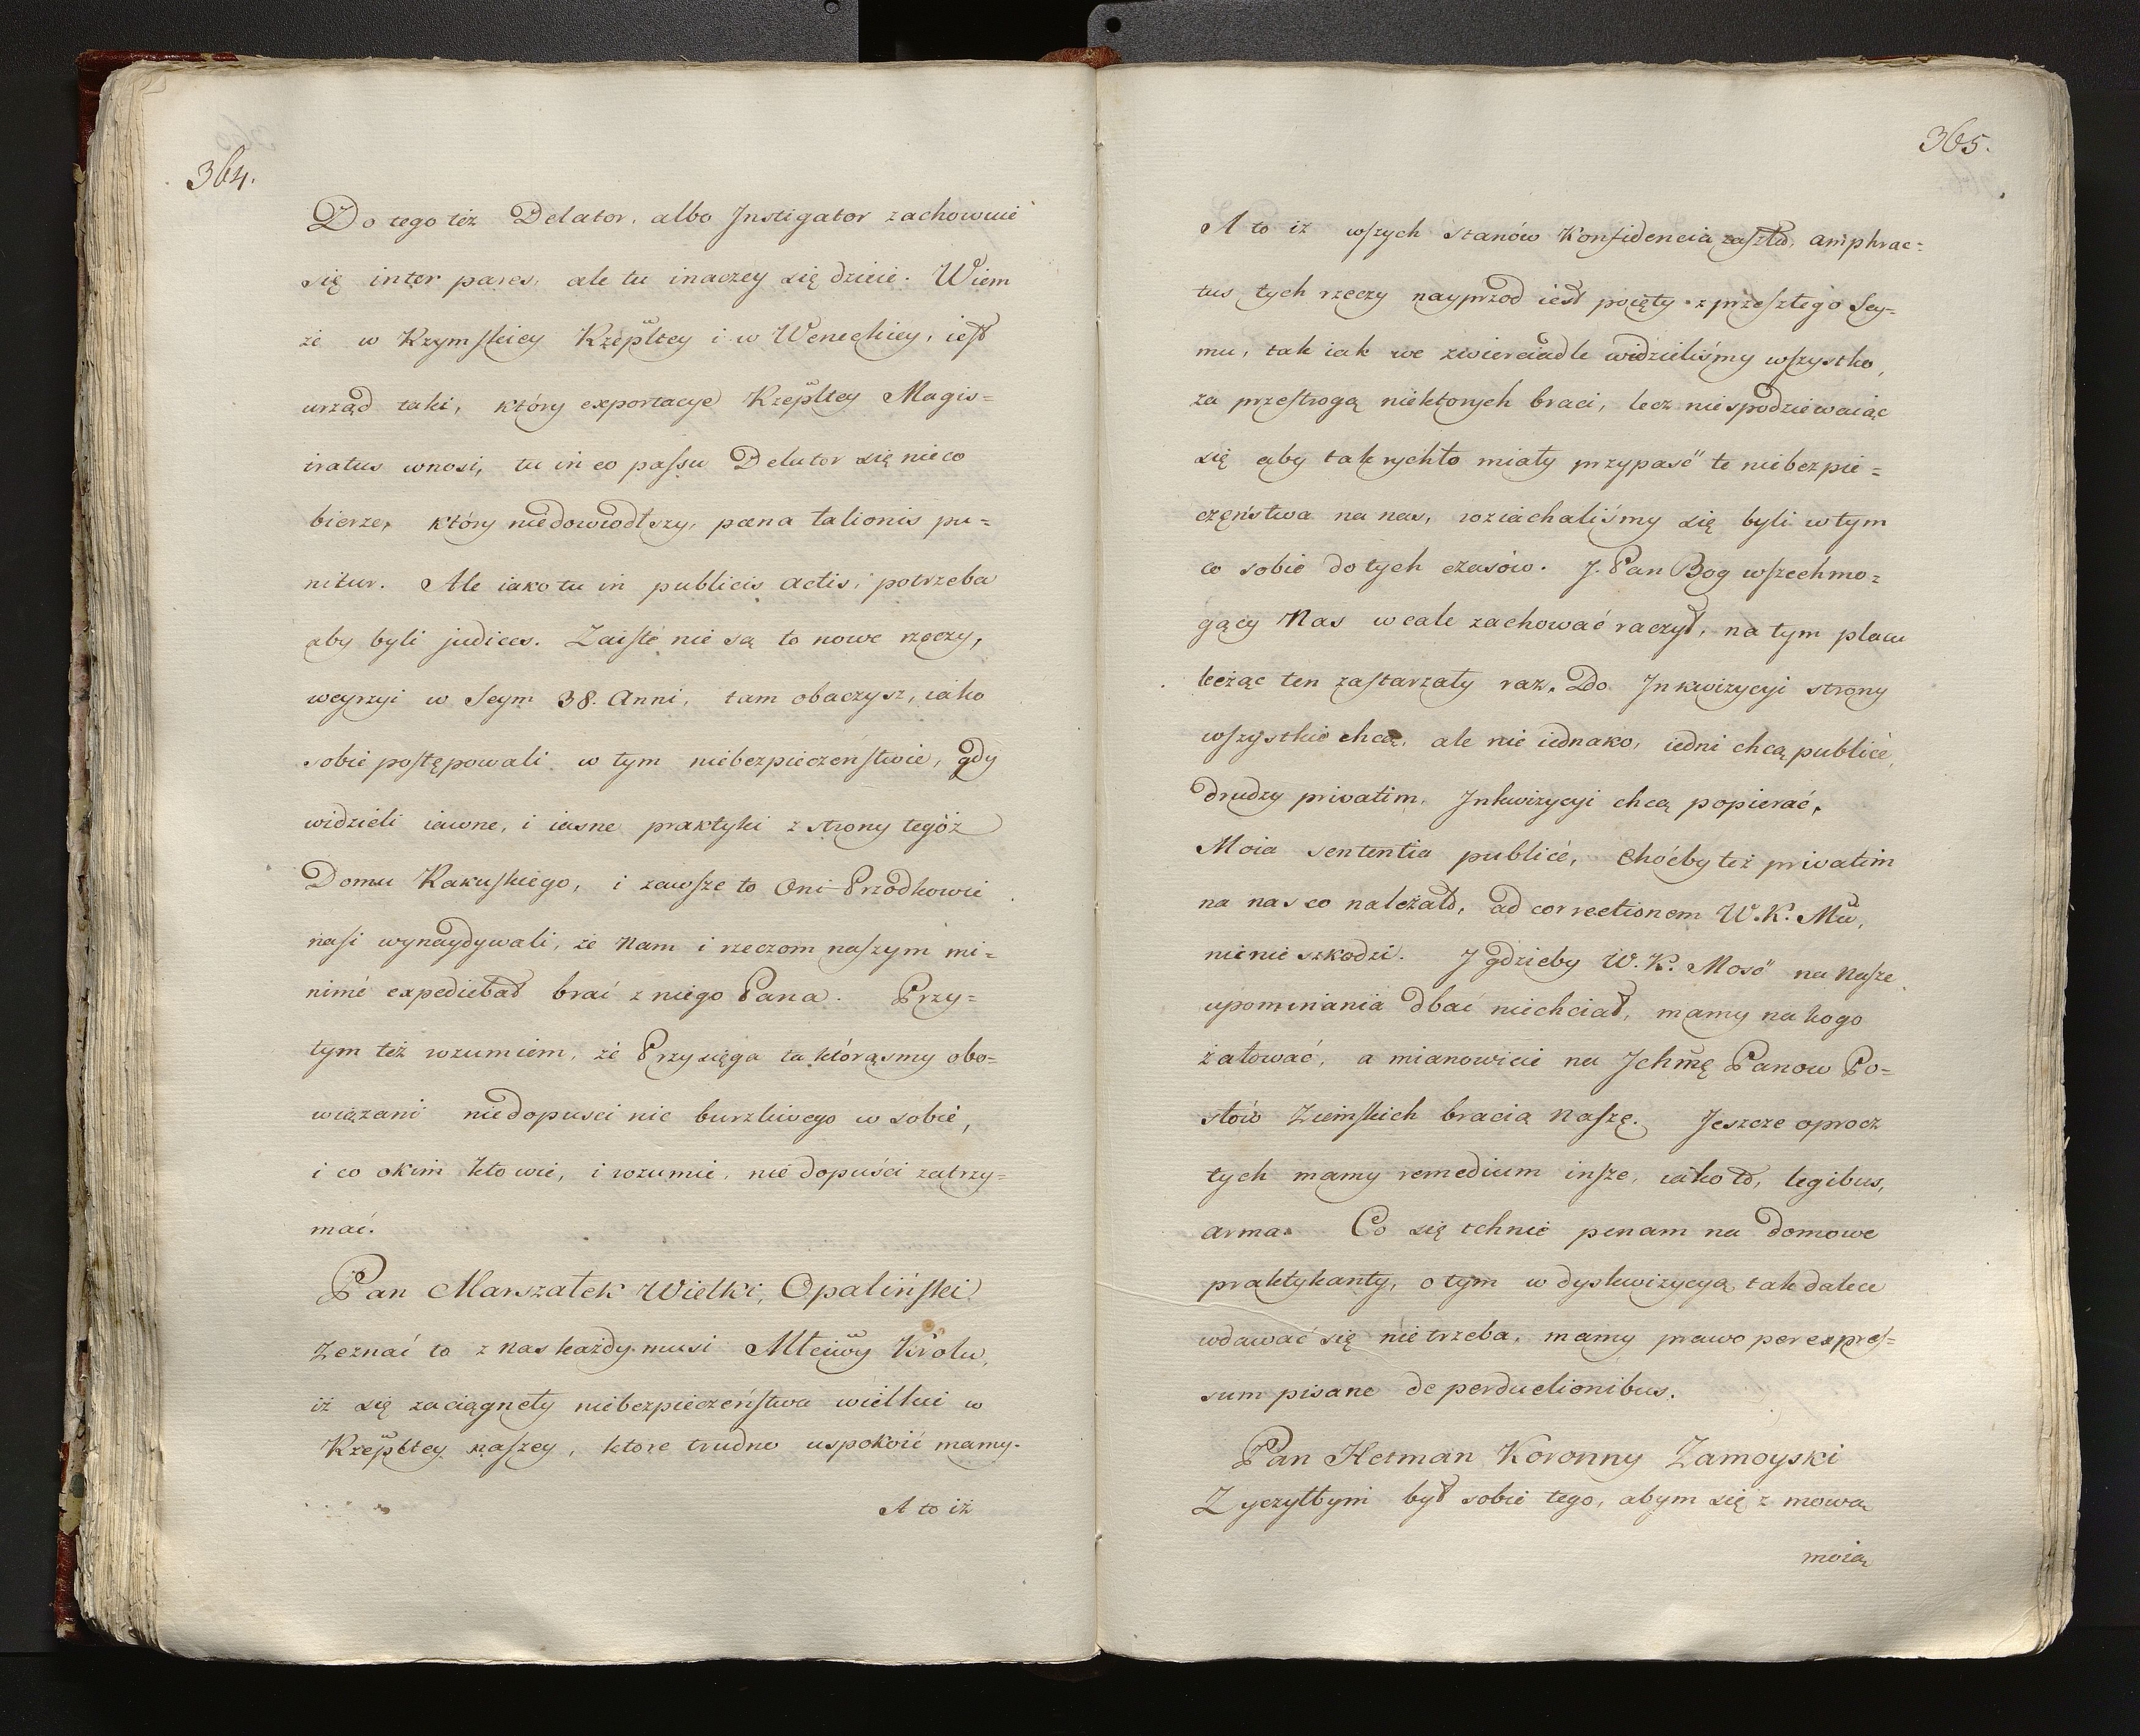 364.
Do tego też Delator, albo Jnstigator zachowuie
się inter pares, ale tu inaczey się dzieie. Wiem
że w Rzymskiey Rzepltey i w Weneckiey, iest
urząd taki, który exportacye Rzepltey Magis=
tratus wnosi, tu in eo passu Delator się nieco
bierze, który niedowiodłszy, pœna talionis pu=
nitur. Ale iako tu in publicis actis, potrzeba
aby byli judices. Zaiste nie są to nowe rzeczy,
weyrzyi w Seym 38. Anni, tam obaczysz, iako
sobie postępowali w tym niebezpieczeństwie, gdy
widzieli iawne, i iasne praktyki z strony tegóż
Domu Rakuskiego, i zawsze to Oni Przodkowie
nasi wynaydywali, że Nam i rzeczom naszym mi=
nimé expediebat brać z niego Pana. Przy=
tym też rozumiem, że Przysięga ta którąsmy obo=
wiązani niedopusci nic burzliwego w sobie,
i co okim kto wie, i rozumie, nie dopuści zatrzy=
mać.
Pan Marszałek Wielki, Opaliński
Zeznać to z nas każdy musi Młciwy Krolu,
iż się zaciągnęły niebezpieczeństwa wielkie w
Rzepltey naszey, ktore trudno uspokoić mamy.
A to iż
365.
A to iż wszych Stanów Konfidencia zaszła, amphrac=
tus tych rzeczy nayprzod iest poięty z przeszłego Sey=
mu, tak iak we zwierciadle widzieliśmy wszystko,
za przestrogą niektorych braci, lecz niespodziewaiąc
się aby tak rychło miały przypaść te niebezpie=
częństwa na nas, roziachaliśmy się byli w tym
co sobie do tych czasów. J. Pan Bog wszechmo=
gący Nas w cale zachować raczył, na tym placu
leżąc ten zastarzały raz. Do Jnkwizycyi strony
wszystkie chcą, ale nie iednako, iedni chcą publicé,
drudzy privatim. Jnkwizycyi chcą popierać,
Moia sententia publicé, choćby też privatim
na nas co należało, ad correctionem W. K. Mci,
nic nie szkodzi. J gdzieby W. K. Mosć na Nasze
upominania dbać niechciał, mamy na kogo
żałować, a mianowicie na Jchmę Panow Po=
słów Ziemskich bracią Naszę. Jeszcze oprocz
tych mamy remedium insze, iako to, legibus,
arma. Co się tchnie penam na domowe
praktykanty, o tym w dyskwizycyą tak dalece
wdawać się nie trzeba, mamy prawo per expres=
sum pisane de perduelionibus.
Pan Hetman Koronny Zamoyski
Zyczyłbym był sobie tego, abym się z mową
moią